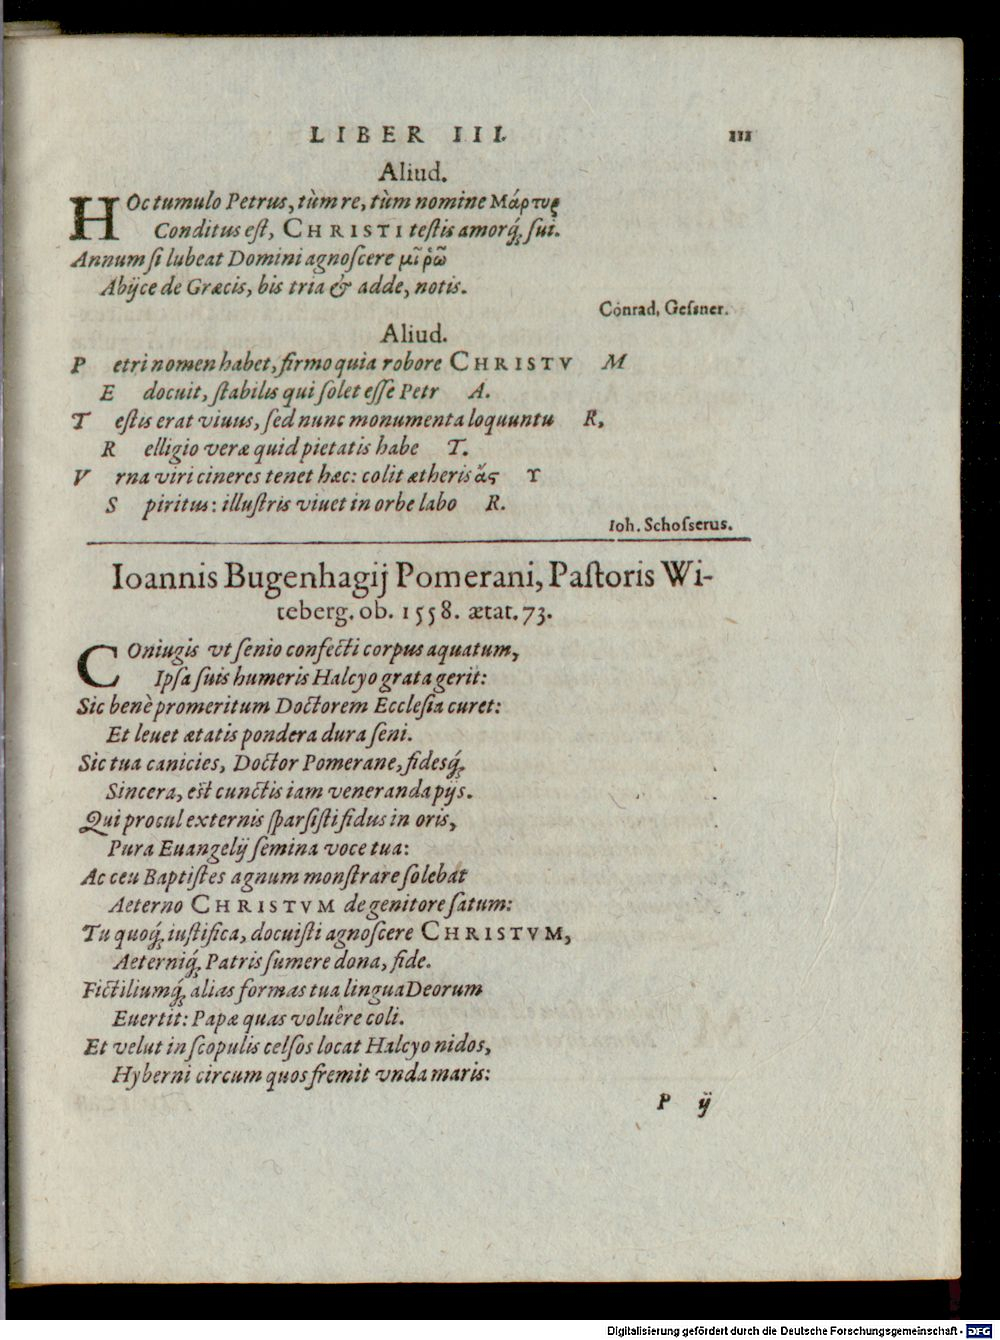 LIBER III. 111
Aliud.
HOc tumulo Petrus, tùm re, tùm nomine Μάρτυς
Conditus est, CHRISTI testis amorq́; sui.
Annum si lubeat Domini agnoscere
Abijce de Græcis, bis tria & adde, notis.
Conrad, Gessner.
Aliud.
P etri nomen habet, firmo quia robore CHRISTV M
E docuit, stabilis qui solet esse Petr A.
T estis erat viuus, sed nunc monumenta loquuntu R,
R elligio veræ quid pietatis habe T.
V rna viri cineres tenet hæc: colit ætheris ἄς Υ
S piritus: illustris viuet in orbe labo R.
Ioh. Schosserus.
Ioannis Bugenhagij Pomerani, Pastoris Wi-
teberg. ob. 1558. ætat. 73.
COniugis vt senio confecti corpus aquatum,
Ipsa suis humeris Halcyo grata gerit:
Sic benè promeritum Doctorem Ecclesia curet:
Et leuet ætatis pondera dura seni.
Sic tua canicies, Doctor Pomerane, fidesq́;
Sincera, est cunctis iam veneranda pijs.
Qui procul externis sparsisti fidus in oris,
Pura Euangelij semina voce tua:
Ac ceu Baptistes agnum monstrare solebat
Aeterno CHRISTVM de genitore satum:
Tu quoq́; iustifica, docuisti agnoscere CHRISTVM,
Aeterniq́; Patris sumere dona, fide.
Fictiliumq́; alias formas tua lingua Deorum
Euertit: Papæ quas voluêre coli.
Et velut in scopulis celsos locat Halcyo nidos,
Hyberni circum quos fremit vnda maris:
P ij
Digitalisierung gefördert durch die Deutsche Forschungsgemeinschaft - DFG